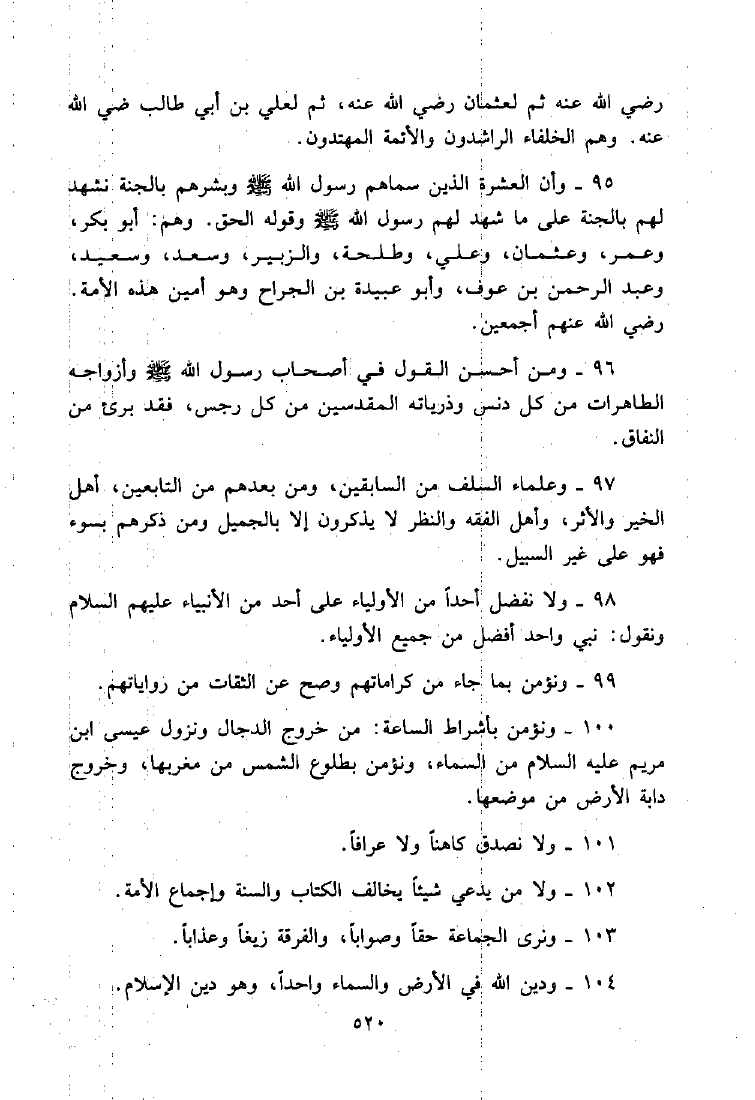 رضي الله عنه ثم لعثمان رضي الله عنه، ثم لعلي بن أبي طالب ضي الله
عنه. وهم الخلفاء الراشدون والأئمة المهتدون.
٩٥ ـ وأن العشرة الذين سماهم رسول الله ﷺ وبشرهم بالجنة نشهد
لهم بالجنة على ما شهد لهم رسول الله ﷺ وقوله الحق. وهم: أبو بكر،
وعمر، وعثمان، وعلي، وطلحة، والزبير، وسعد، وسعيد،
وعبد الرحمن بن عوف، وأبو عبيدة بن الجراح وهو أمين هذه الأمة.
رضي الله عنهم أجمعين.
٩٦ ـ ومن أحسن القول في أصحاب رسول الله ﷺ وأزواجه
الطاهرات من كل دنس وذرياته المقدسين من كل رجس، فقد برئ من
النفاق.
٩٧ ـ وعلماء السلف من السابقين، ومن بعدهم من التابعين، أهل
الخير والأثر، وأهل الفقه والنظر لا يذكرون إلا بالجميل ومن ذكرهم بسوء
فهو على غير السبيل.
٩٨ ـ ولا نفضل أحداً من الأولياء على أحد من الأنبياء عليهم السلام
ونقول: نبي واحد أفضل من جميع الأولياء.
٩٩ ـ ونؤمن بما جاء من كراماتهم وصح عن الثقات من رواياتهم.
١٠٠ ـ ونؤمن بأشراط الساعة: من خروج الدجال ونزول عيسى ابن
مريم عليه السلام من السماء، ونؤمن بطلوع الشمس من مغربها، وخروج
دابة الأرض من موضعها.
١٠١ ـ ولا نصدق كاهناً ولا عرافاً.
١٠٢ ـ ولا من يدعي شيئاً يخالف الكتاب والسنة وإجماع الأمة.
١٠٣ ـ ونرى الجماعة حقاً وصواباً، والفرقة زيغاً وعذاباً.
١٠٤ ـ ودين الله في الأرض والسماء واحداً، وهو دين الإسلام.
٥٢٠